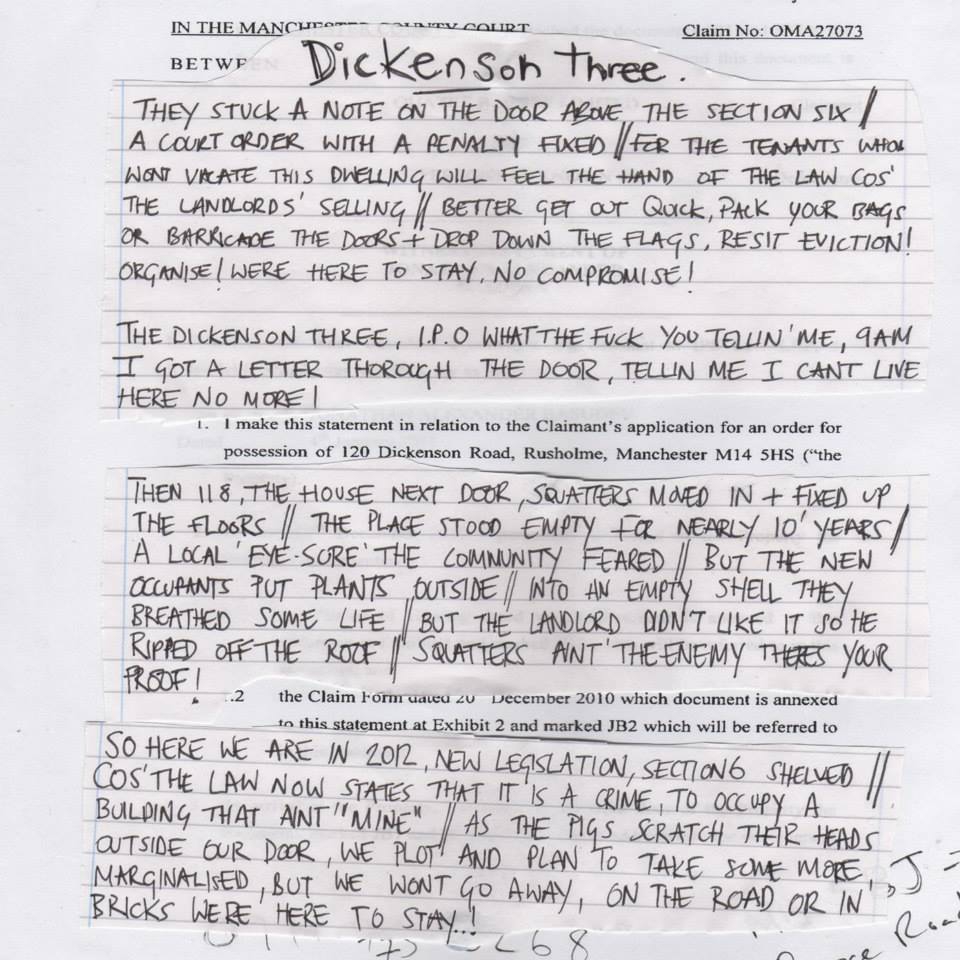 IN THE MANCHESTER COUNTY COURT
Claim No: OMA27073
BETWEEN
Dickenson Three.
THEY STUCK A NOTE ON THE DOOR ABOVE THE SECTION SIX /
A COURT ORDER WITH A PENALTY FIXED // FOR THE TENANTS WHOM
WONT VACATE THIS DWELLING WILL FEEL THE HAND OF THE LAW COS'
THE LANDLORDS' SELLING // BETTER GET OUT QUICK, PACK YOUR BAGS
OR BARRICADE THE DOORS + DROP DOWN THE FLAGS, RESIT EVICTION!
ORGANISE! WERE HERE TO STAY, NO COMPROMISE!
THE DICKENSON THREE, I.P.O WHAT THE FUCK YOU TELLIN' ME, 9AM
I GOT A LETTER THOROUGH THE DOOR, TELLIN ME I CANT LIVE
HERE NO MORE!
1. I make this statement in relation to the Claimant's application for an order for
possession of 120 Dickenson Road, Rusholme, Manchester M14 5HS ("the
THEN 118, THE HOUSE NEXT DOOR, SQUATTERS MOVED IN + FIXED UP
THE FLOORS // THE PLACE STOOD EMPTY FOR NEARLY 10' YEARS /
A LOCAL 'EYE-SORE' THE COMMUNITY FEARED // BUT THE NEW
OCCUPANTS PUT PLANTS OUTSIDE // INTO AN EMPTY SHELL THEY
BREATHED SOME LIFE // BUT THE LANDLORD DIDN'T LIKE IT SO HE
RIPPED OFF THE ROOF // SQUATTERS AINT' THE ENEMY THERES YOUR
PROOF!
.2 the Claim Form dated 20 December 2010 which document is annexed
to this statement at Exhibit 2 and marked JB2 which will be referred to
SO HERE WE ARE IN 2012, NEW LEGISLATION, SECTION 6 SHELVED //
COS' THE LAW NOW STATES THAT IT IS A CRIME, TO OCCUPY A
BUILDING THAT AINT "MINE" // AS THE PIGS SCRATCH THEIR HEADS
OUTSIDE OUR DOOR, WE PLOT AND PLAN TO TAKE SOME MORE,
MARGINALISED, BUT WE WONT GO AWAY, ON THE ROAD OR IN
BRICKS WERE HERE TO STAY..!